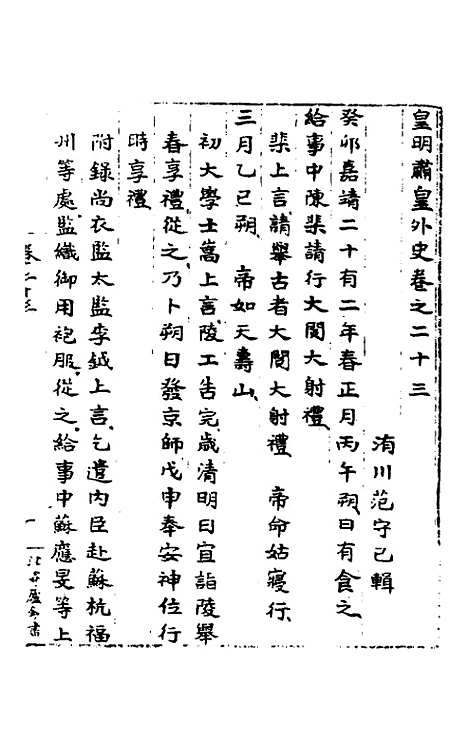 皇明肅皇外史卷之二十三
洧川范守己輯
癸卯嘉靖二十有二年春正月丙午朔日有食之
給事中陳棐請行大閱大射禮
棐上言請舉古者大閱大射禮　帝命姑寢行
三月乙巳朔　帝如天壽山
初大學士嵩上言陵工告完歲清明日宜詣陵舉
春享禮從之乃卜朔日發京師戊申奉安神位行
時享禮
附錄尚衣監太監李鉞上言乞遣內臣赴蘇杭福
州等處監織御用袍服從之給事中蘇應旻等上
卷二十三
一